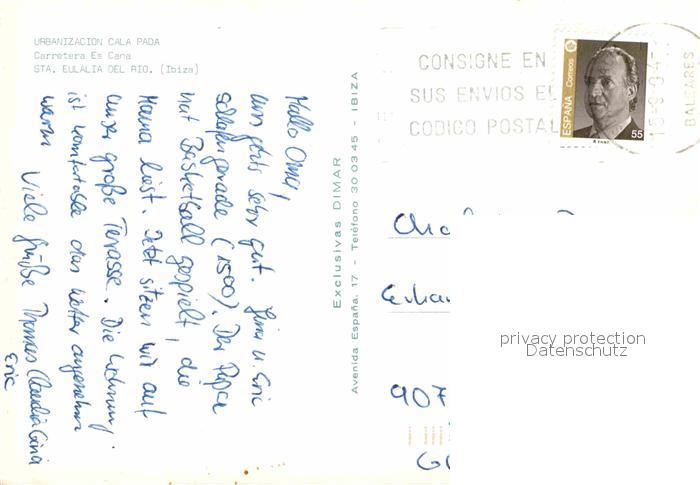 URBANIZACION CALA PADA
Carretera Es Cana
STA. EULALIA DEL RIO. (Ibiza)
Hallo Oma,
uns gehts sehr gut. Gina u. Eric
schlafen gerade (1500). Der Papa
hat Basketball gespielt, die
Mama liest. Jetzt sitzen wir auf
unser große Terasse. Die Wohnung
ist komfortable das Wetter angenehm
warm Viele Grüße Thomas Claudia Gina
Eric
Exclusivas DIMAR
Avenida España, 17 - Teléfono 30 03 45 - IBIZA
CONSIGNE EN
SUS ENVIOS EL
CODIGO POSTAL
BALEARES
ESPAÑA Correos
55
907
privacy protection
Datenschutz